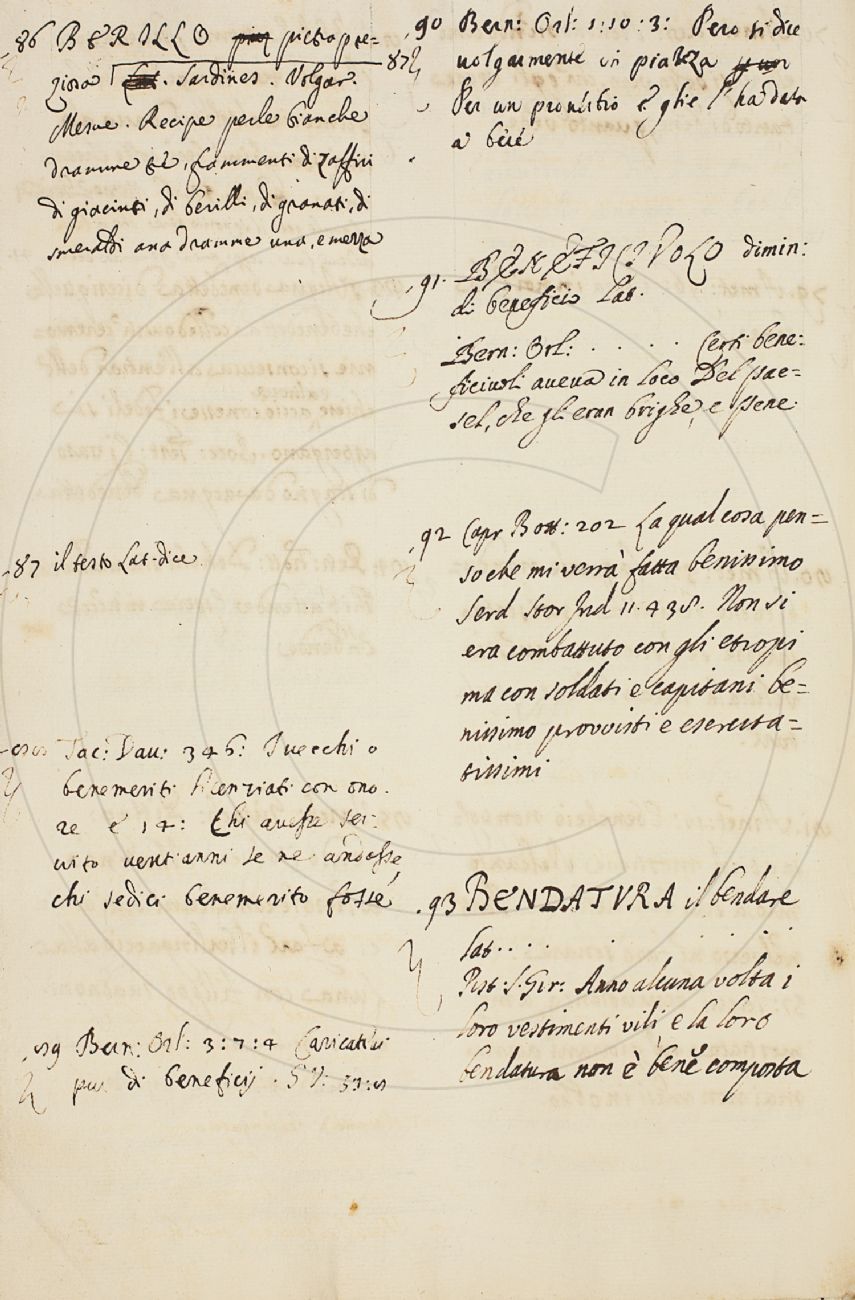 86 BERILLO pietra pre=
ziosa Lat. Sardines. Volgar.
Mesue. Recipe perle bianche
dramme, frammenti di zaffiri
di giacinti, di berilli, di granati, di
smeraldi ana dramme una, e mezza
87 il testo Lat. dice
Tac: Dau: 346: I vecchi o
benemeriti licenziati con ono
re e 14: Chi avesse ser=
vito vent'anni se ne andasse,
chi sedici benemerito fosse
89 Bern: Orl: 3:7:4 Caricatili
pur di beneficij.
90 Bern: Orl: 1:10:3: Pero si dice
87
volgarmente in piazza
Per un pronostio e glie l'ha data
a bere
91. BENEFICIVOLO dimin:
di beneficio Lat.
Bern: Orl: . . . . . Certi bene=
ficivoli aveva in loco Del pae=
sel, che gli eran brighe, e pene
92 Capr Bott: 202 La qual cosa pen=
so che mi verrà fatta benissimo
Serd Stor Ind 11. 438. Non si
era combattuto con gli etiopi
ma con soldati e capitani be=
nissimo provvisti e esercita=
tissimi
.93 BENDATVRA il bendare
Lat. . . .
Pist: S. Gir: Anno alcuna volta i
loro vestimenti vili e la loro
bendatura non è bene composta